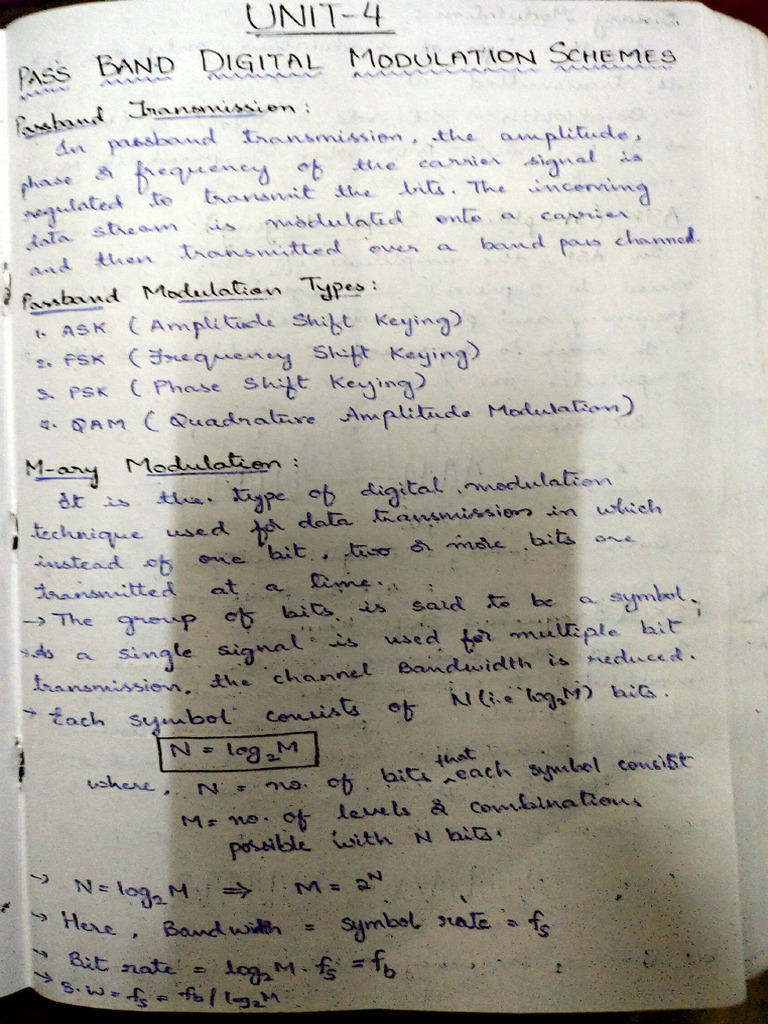 UNIT-4
PASS BAND DIGITAL MODULATION SCHEMES
Passband Transmission:
In passband transmission, the amplitude,
phase & frequency of the carrier signal is
regulated to transmit the bits. The incoming
data stream is modulated onto a carrier
and then transmitted over a band pass channel.
Passband Modulation Types:
1. ASK (Amplitude Shift Keying)
2. FSK (Frequency Shift Keying)
3. PSK (Phase Shift Keying)
4. QAM (Quadrature Amplitude Modulation)
M-ary Modulation:
It is the type of digital modulation
technique used for data transmission in which
instead of one bit, two or more bits are
transmitted at a time.
→ The group of bits is said to be a symbol.
→ As a single signal is used for multiple bit
transmission, the channel Bandwidth is reduced.
→ Each symbol consists of N (i.e log₂M) bits.
N = log₂M
where, N = no. of bits that each symbol consist
M = no. of levels & combinations
possible with N bits.
→ N = log₂M ⇒ M = 2ᴺ
→ Here, Bandwith = symbol rate = fs
→ Bit rate = log₂M · fs = fb
→ B.W = fs = fb / log₂M